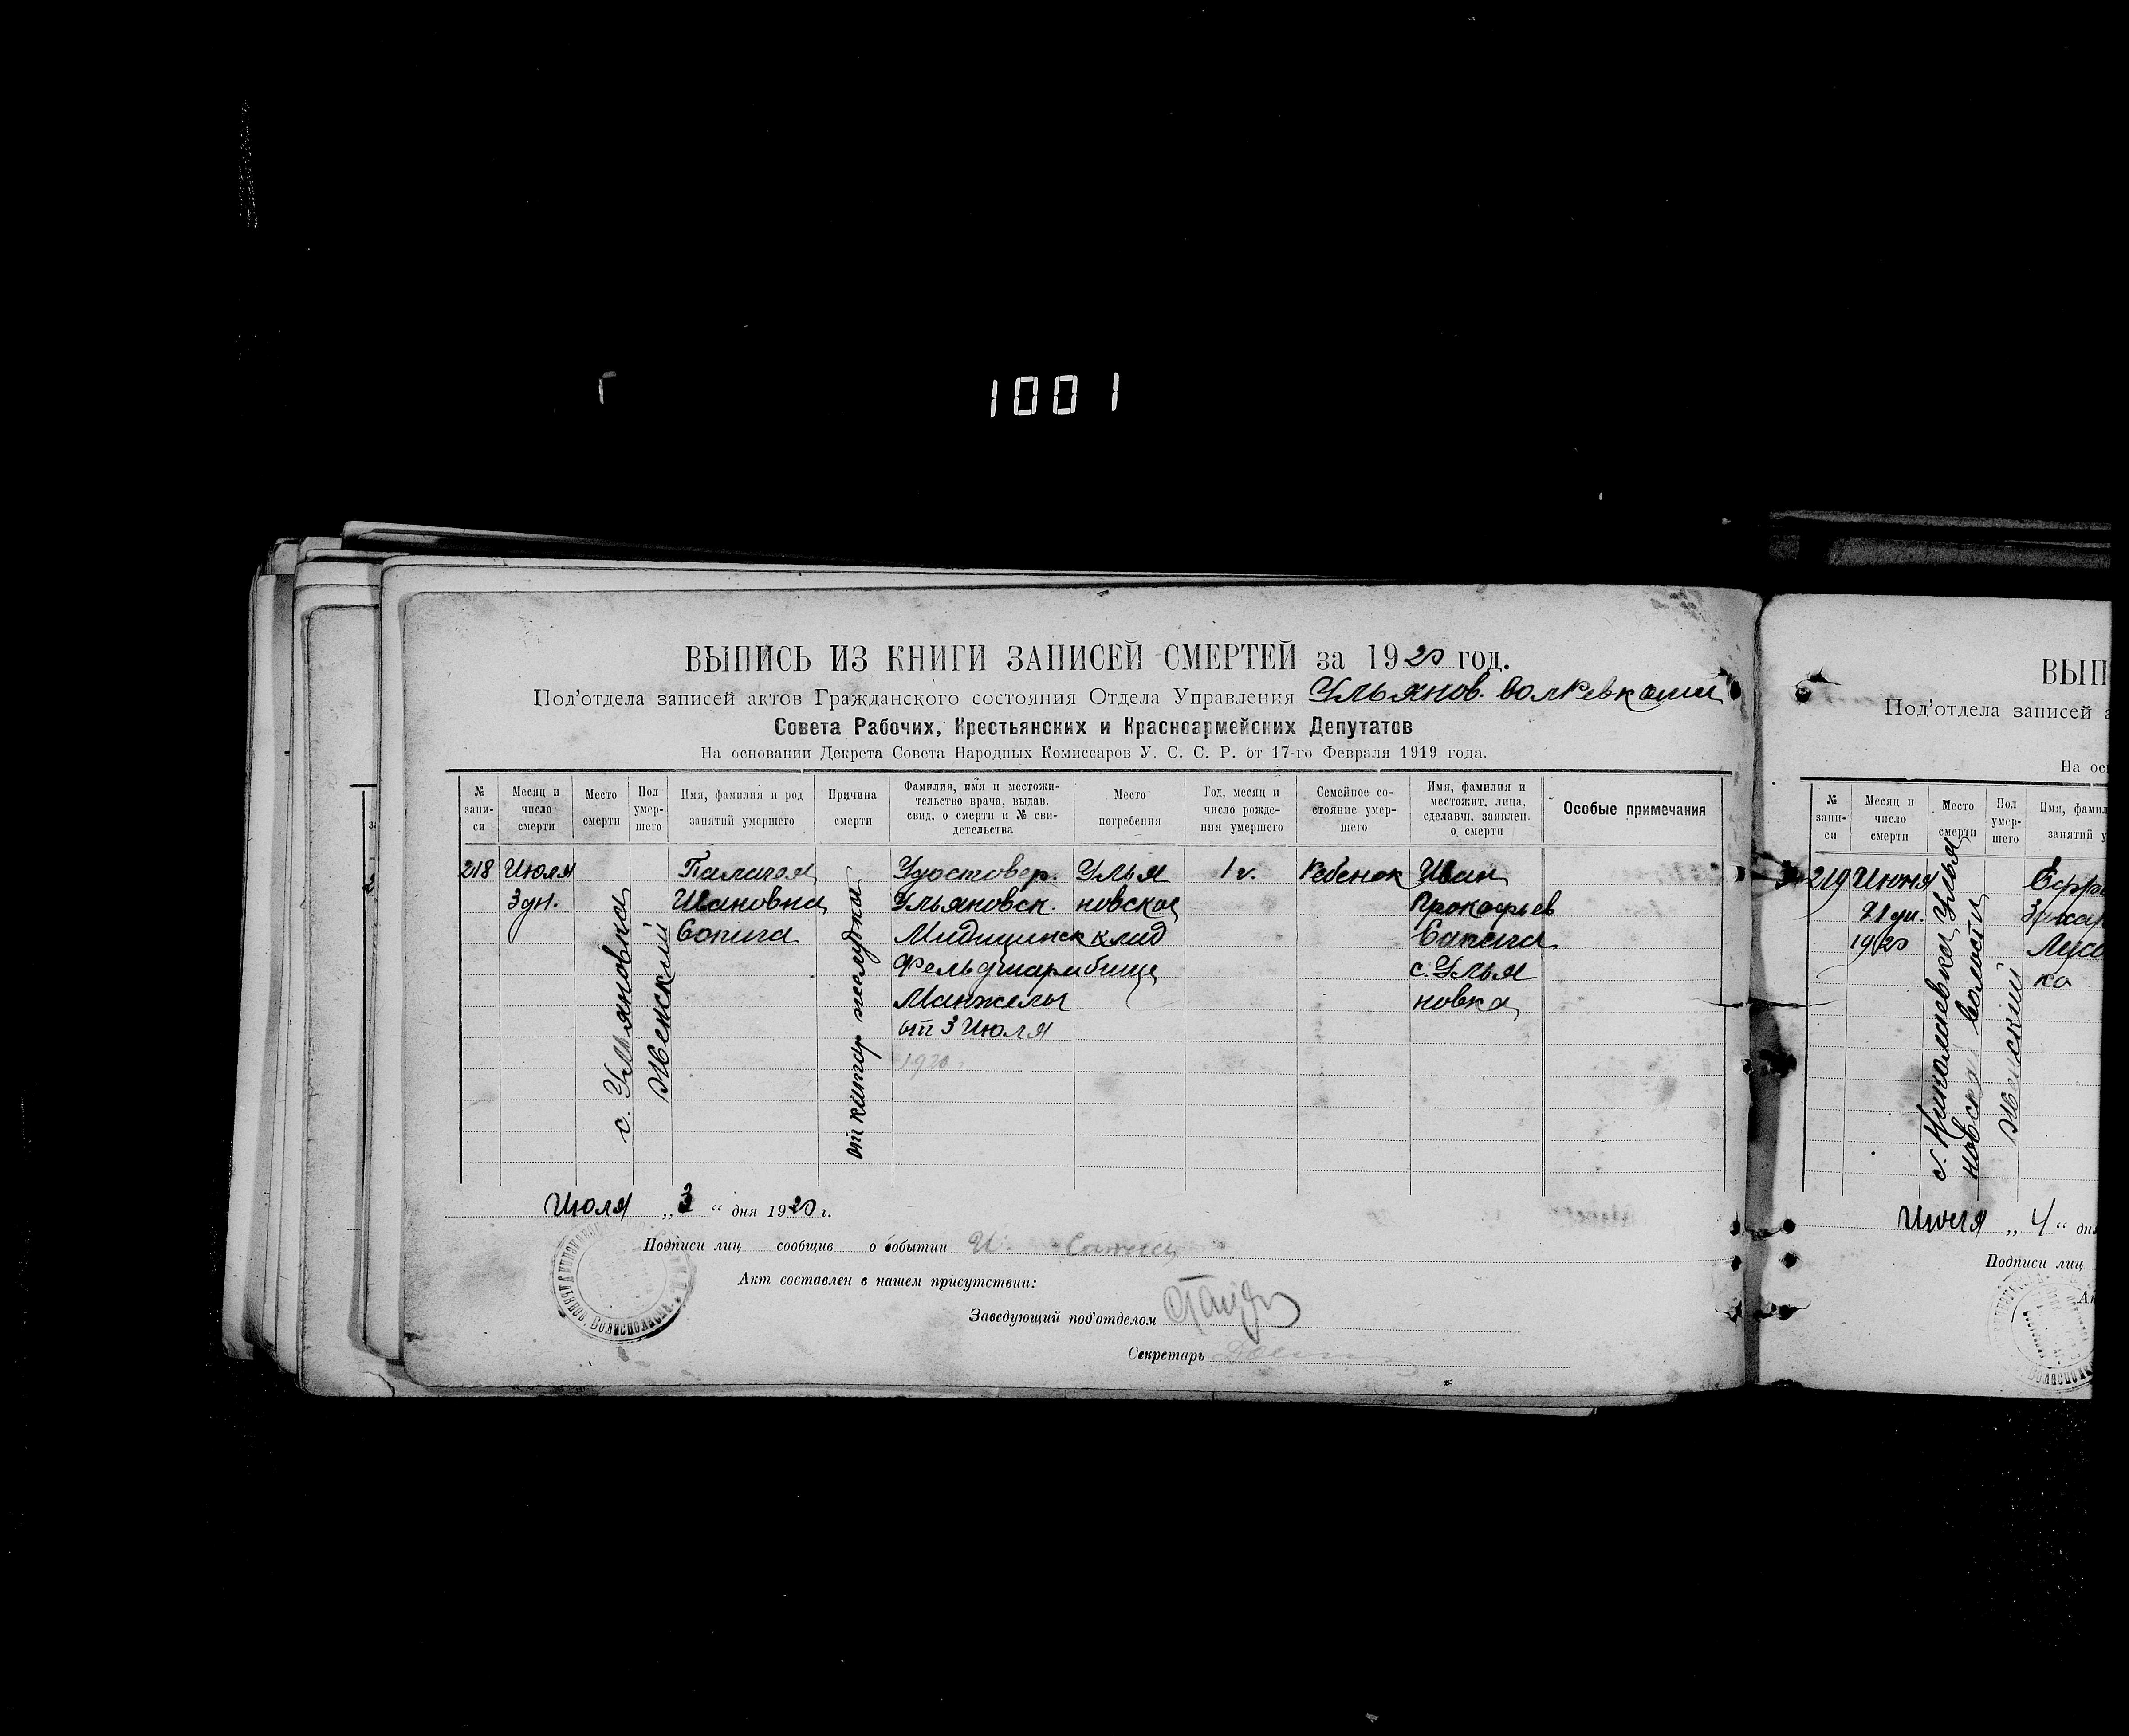 1001
ВЫПИСЬ ИЗ КНИГИ ЗАПИСЕЙ СМЕРТЕЙ за 1920 год.
Под'отдела записей актов Гражданского состояния Отдела Управления Ульянов. волревкоми
Совета Рабочих, Крестьянских и Красноармейских Депутатов
На основании Декрета Совета Народных Комиссаров У. С. С. Р. от 17-го Февраля 1919 года.
№ запи-си
Месяц и число смерти
Место смерти
Пол умер-шего
Имя, фамилия и род занятий умершего
Причина смерти
Фамилия, имя и местожи-тельство врача, выдав. свид. о смерти и № сви-детельства
Место погребения
Год, месяц и число рожде-ния умершего
Семейное со-стояние умер-шего
Имя, фамилия и местожит. лица, сделавш. заявлен. о смерти
Особые примечания
218
Июля
3 дн.
с. Ульяновка
Женский
Палагея
Ивановна
Сапига
от катар желудка
Удостовер.
Ульяновск.
Медицинск
Фельдшара
Манжелы
от 3 Июля
1920
Улья
новское
клад
бище
1 г.
Ребенок
Иван
Прокофьев
Сапига
с. Улья
новка
Июля „3“ дня 1920 г.
Подписи лиц сообщив о событии И. Сапига
Акт составлен в нашем присутствии:
Заведующий под'отделом
Секретарь
ВЫП
Под'отдела записей а
На ос
№ запи-си
Месяц и число смерти
Место смерти
Пол умер-шего
Имя, фамил
занятий у
219
Июня
21 дн.
1920
с. Николаевка Улья
новской волости
Женский
ко
Июля „4“ дн
Подписи лиц